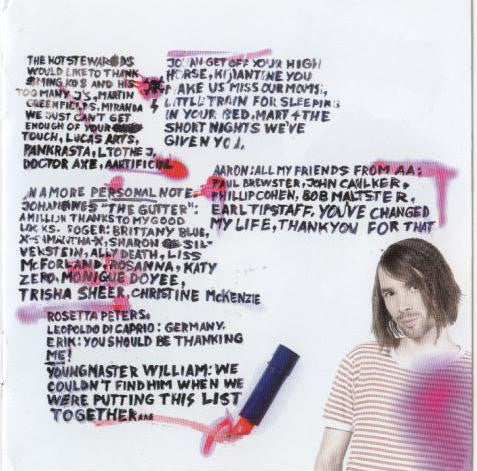 THE HOT STEWARDS
WOULD LIKE TO THANK
AND HIS
TOO MANY J'S, MARTIN
GREENFIELDS, MIRANDA
WE JUST CAN'T GET
ENOUGH OF YOUR
TOUCH, LUCAS ARTS,
PANKRASTA, L TO THE J,
DOCTOR AXE, AARTIFICIAL
GET OFF YOUR HIGH
HORSE, YOU
MAKE US MISS OUR MOMS,
LITTLE TRAIN FOR SLEEPING
IN YOUR BED, MART 4 THE
SHORT NIGHTS WE'VE
GIVEN YOU,
IN A MORE PERSONAL NOTE:
"THE GUTTER":
A MILLION THANKS TO MY GOOD
ROGER: BRITTANY BLUE,
X-SAMANTHA-X, SHARON SIL-
VERSTEIN, ALLY DEATH, LISS
MCFORLAND, ROSANNA, KATY
ZERO, MONIQUE DOYEE,
TRISHA SHEER, CHRISTINE McKENZIE
ROSETTA PETERS,
LEOPOLDO DI CAPRIO: GERMANY.
ERIK: YOU SHOULD BE THANKING
ME!
YOUNGMASTER WILLIAM: WE
COULDN'T FIND HIM WHEN WE
WERE PUTTING THIS LIST
TOGETHER...
AARON: ALL MY FRIENDS FROM AA:
PAUL BREWSTER, JOHN CAULKER,
PHILLIP COHEN, BOB MALTSTER,
EARL TIPSTAFF. YOU'VE CHANGED
MY LIFE, THANK YOU FOR THAT